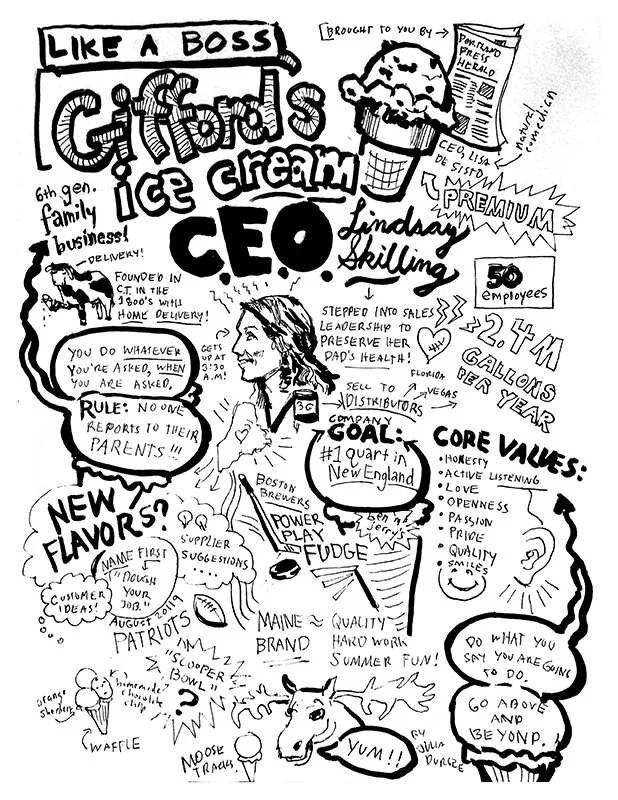 LIKE A BOSS
[BROUGHT TO YOU BY
PORTLAND
PRESS
HERALD
natural
comedian
CEO, LISA
DE SISTO
Gifford's
ice cream
C.E.O.
Lindsay
Skilling
PREMIUM
6th gen.
family
business!
DELIVERY!
FOUNDED IN
C.T. IN THE
1800's WITH
HOME DELIVERY!
GETS
UP AT
3:30
A.M!
STEPPED INTO SALES
LEADERSHIP TO
PRESERVE HER
DAD'S HEALTH!
50
employees
4H
2.4M
GALLONS
PER YEAR
YOU DO WHATEVER
YOU'RE ASKED, WHEN
YOU ARE ASKED.
RULE: NO ONE
REPORTS TO THEIR
PARENTS!!!
SELL TO
DISTRIBUTORS
FLORIDA
VEGAS
COMPANY
GOAL:
#1 quart in
New England
Ben n'
Jerry's
CORE VALUES:
• HONESTY
• ACTIVE LISTENING
• LOVE
• OPENNESS
• PASSION
• PRIDE
• QUALITY
• SMILES
NEW
FLAVORS?
SUPPLIER
SUGGESTIONS
CUSTOMER
IDEAS!
NAME FIRST
"DOUGH
YOUR
JOB."
AUGUST 2019
PATRIOTS
BOSTON
BREWERS
POWER
PLAY
FUDGE
MAINE ≈ QUALITY
BRAND
HARD WORK
SUMMER FUN!
DO WHAT YOU
SAY YOU ARE GOING
TO DO.
GO ABOVE
AND
BEYOND.
"SCOOPER
BOWL"
?
homemade
chocolate
chip
orange
sherbert
WAFFLE
MOOSE
TRACKS
YUM!!
BY
JULIA